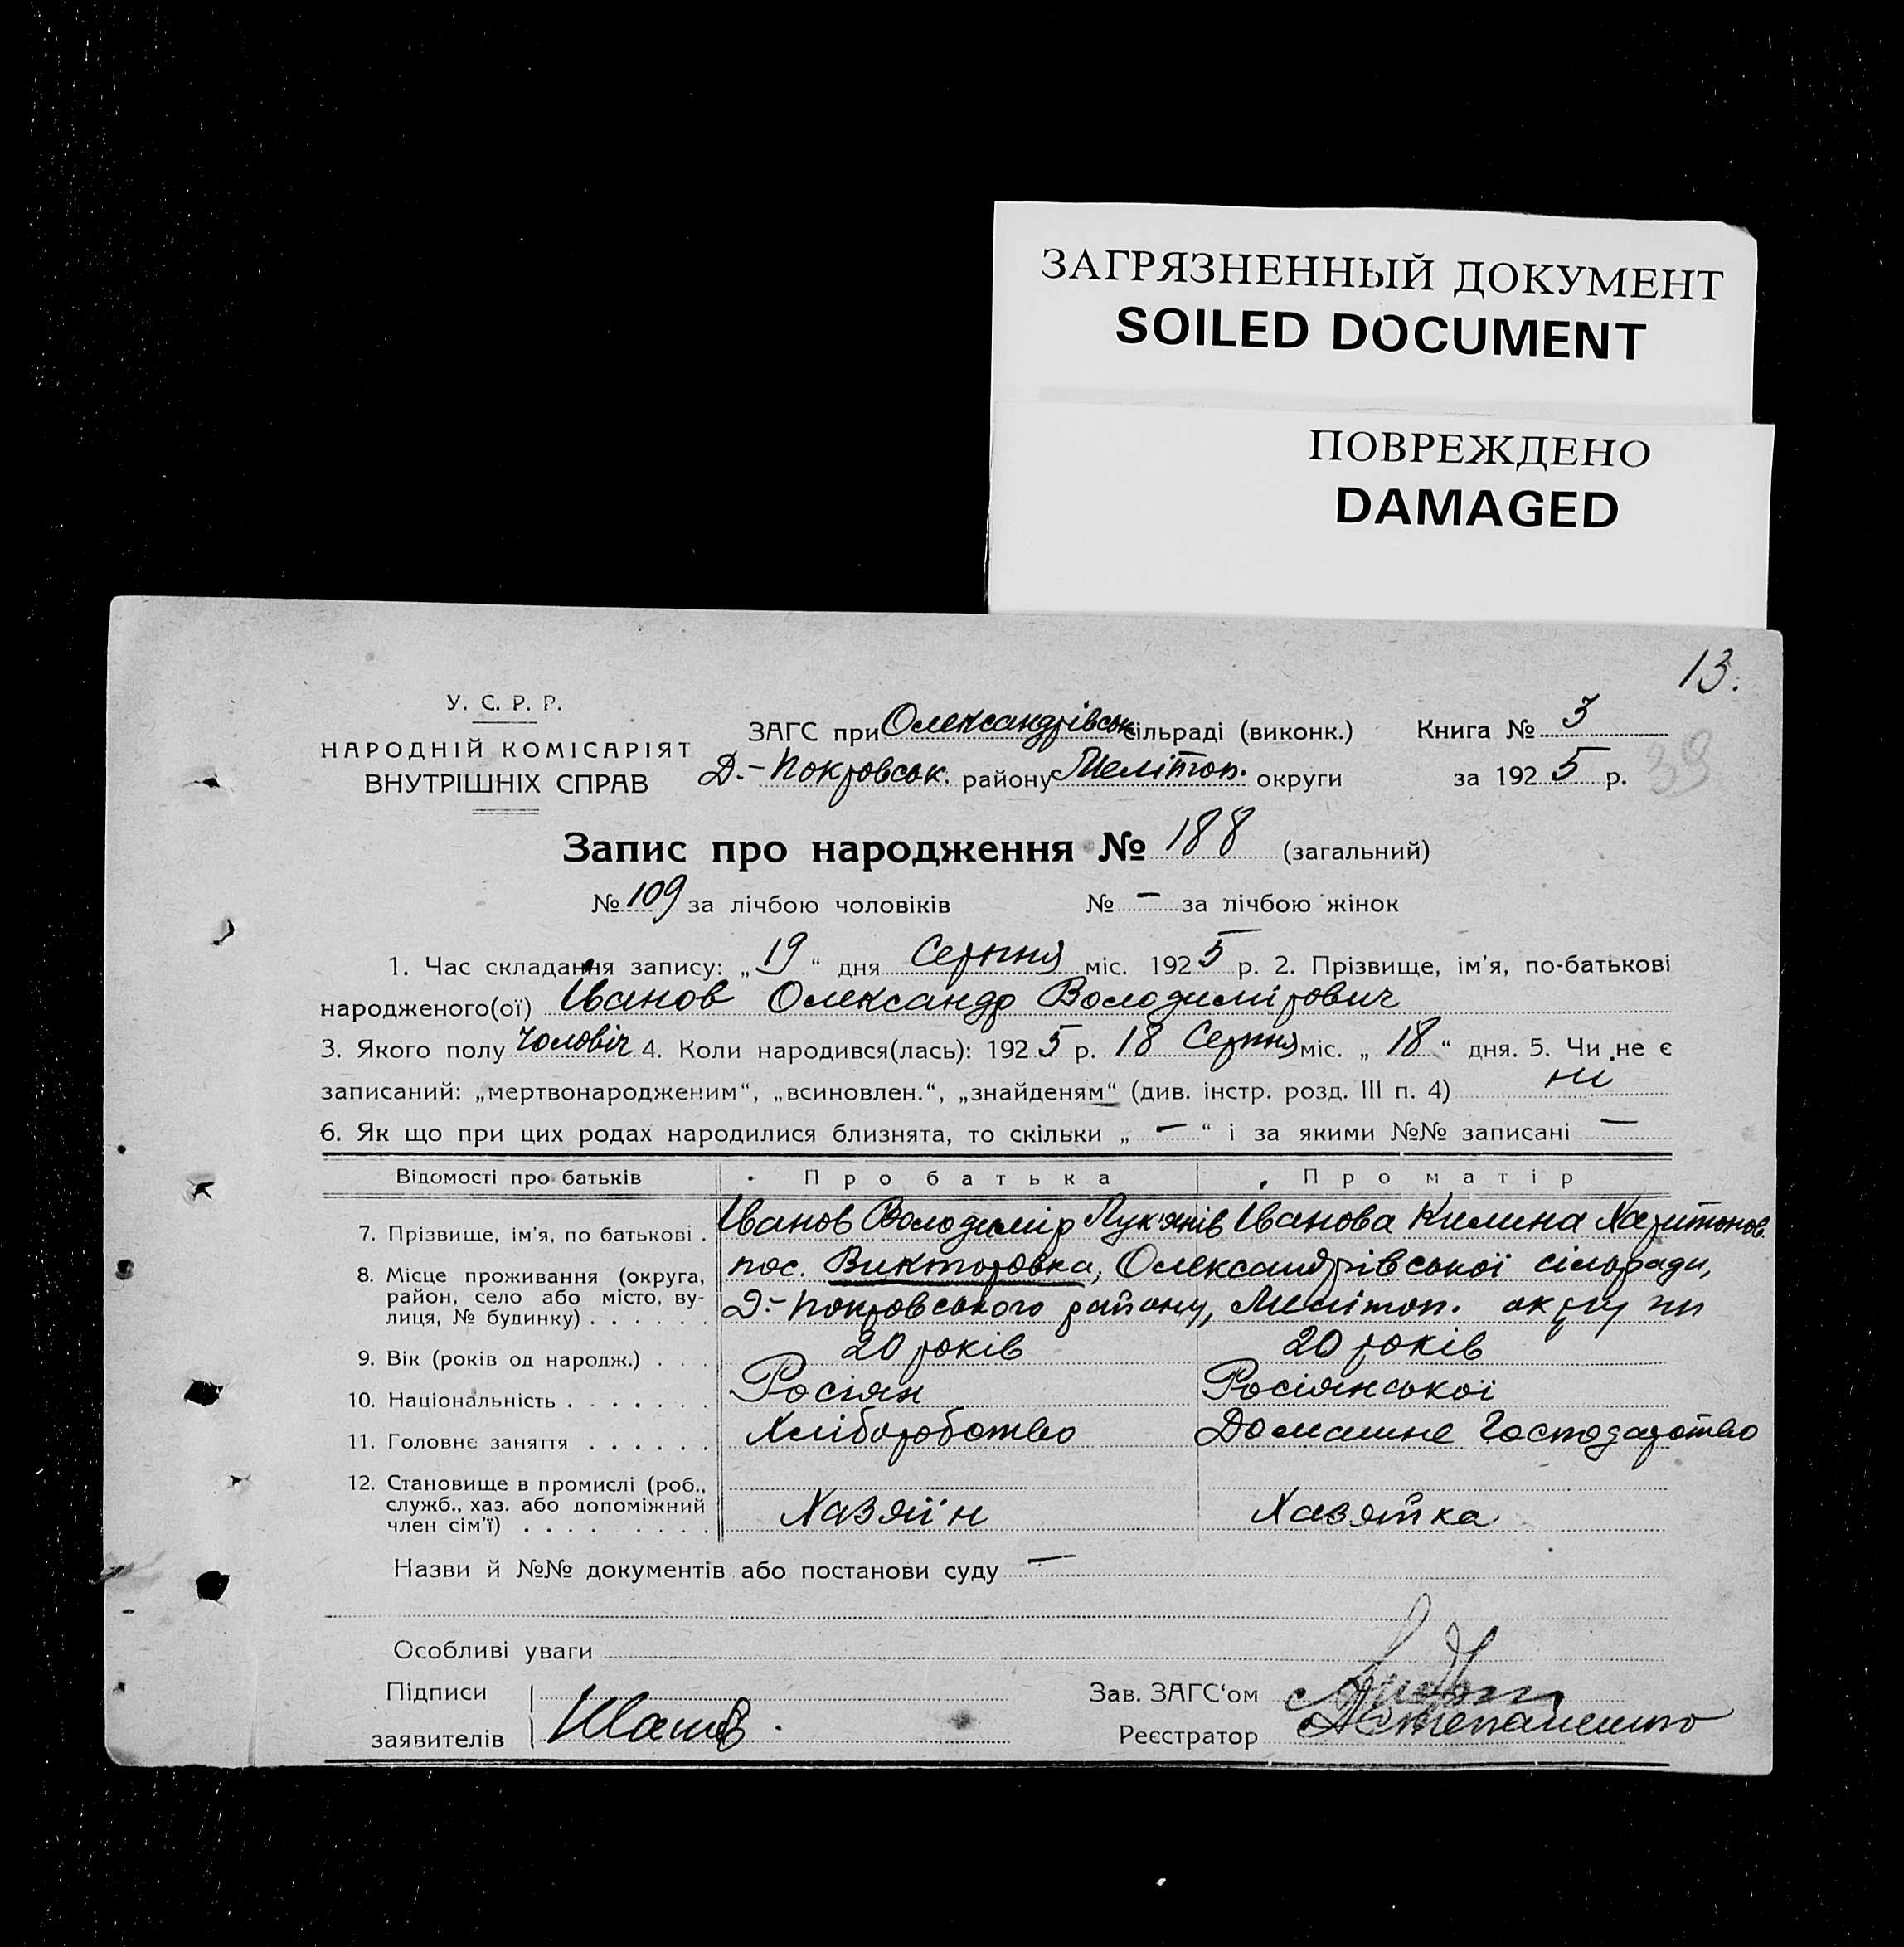 ЗАГРЯЗНЕННЫЙ ДОКУМЕНТ
SOILED DOCUMENT
ПОВРЕЖДЕНО
DAMAGED
13.
У. С. Р. Р.
НАРОДНІЙ КОМІСАРІЯТ
ВНУТРІШНІХ СПРАВ
ЗАГС при Олександрівськ сільраді (виконк.)
Д.-Покровськ. району Мелітоп. округи
Книга № 3
39
за 1925 р.
Запис про народження № 188 (загальний)
№ 109 за лічбою чоловіків № — за лічбою жінок
1. Час складання запису: „19“ дня Серпня міс. 1925 р. 2. Прізвище, ім'я, по-батькові
народженого(ої) Іванов Олександр Володимірович
3. Якого полу Чоловіч 4. Коли народився(лась): 1925 р. 18 Серпня міс. „18“ дня. 5. Чи не є
записаний: „мертвонародженим“, „всиновлен.“, „знайденям“ (див. інстр. розд. III п. 4) ни
6. Як що при цих родах народилися близнята, то скільки „—“ і за якими №№ записані —
Відомості про батьків Про батька Про матір
7. Прізвище, ім'я, по батькові . Іванов Володимір Лук'янів Іванова Килина Харитонов.
8. Місце проживання (округа, район, село або місто, вулиця, № будинку) . . . . . . пос. Викторовка, Олександрівської сільради,
Д.-Покровського району, Мелітоп. округи
9. Вік (років од народж.) . . . 20 років 20 років
10. Національність . . . . . . . Росіян Росіянської
11. Головне заняття . . . . . . Хліборобство Домашнє Господарство
12. Становище в промислі (роб., служб., хаз. або допоміжний член сім'ї) . . . . . . . . Хазяїн Хазяйка
Назви й №№ документів або постанови суду —
Особливі уваги
Підписи
заявителів
Зав. ЗАГС'ом
Реєстратор